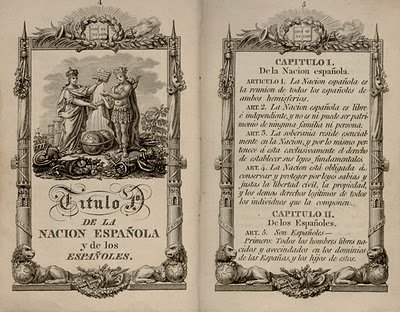 Titulo I.
DE LA
NACION ESPAÑOLA
y de los
ESPAÑOLES.
CAPITULO I.
De la Nacion española.
ARTICULO 1. La Nacion española es
la reunion de todos los españoles de
ambos hemisferios.
ART. 2. La Nacion española es libre
é independiente, y no es ni puede ser patri-
monio de ninguna familia ni persona.
ART. 3. La soberania reside esencial-
mente en la Nacion, y por lo mismo per-
tenece á esta exclusivamente el derecho
de establecer sus leyes fundamentales.
ART. 4. La Nacion está obligada á
conservar y proteger por leyes sabias y
justas la libertad civil, la propiedad,
y los demas derechos legitimos de todos
los individuos que la componen.
CAPITULO II.
De los Españoles.
ART. 5. Son Españoles—
Primero: Todos los hombres libres na-
cidos y avecindados en los dominios
de las Españas, y los hijos de estos.